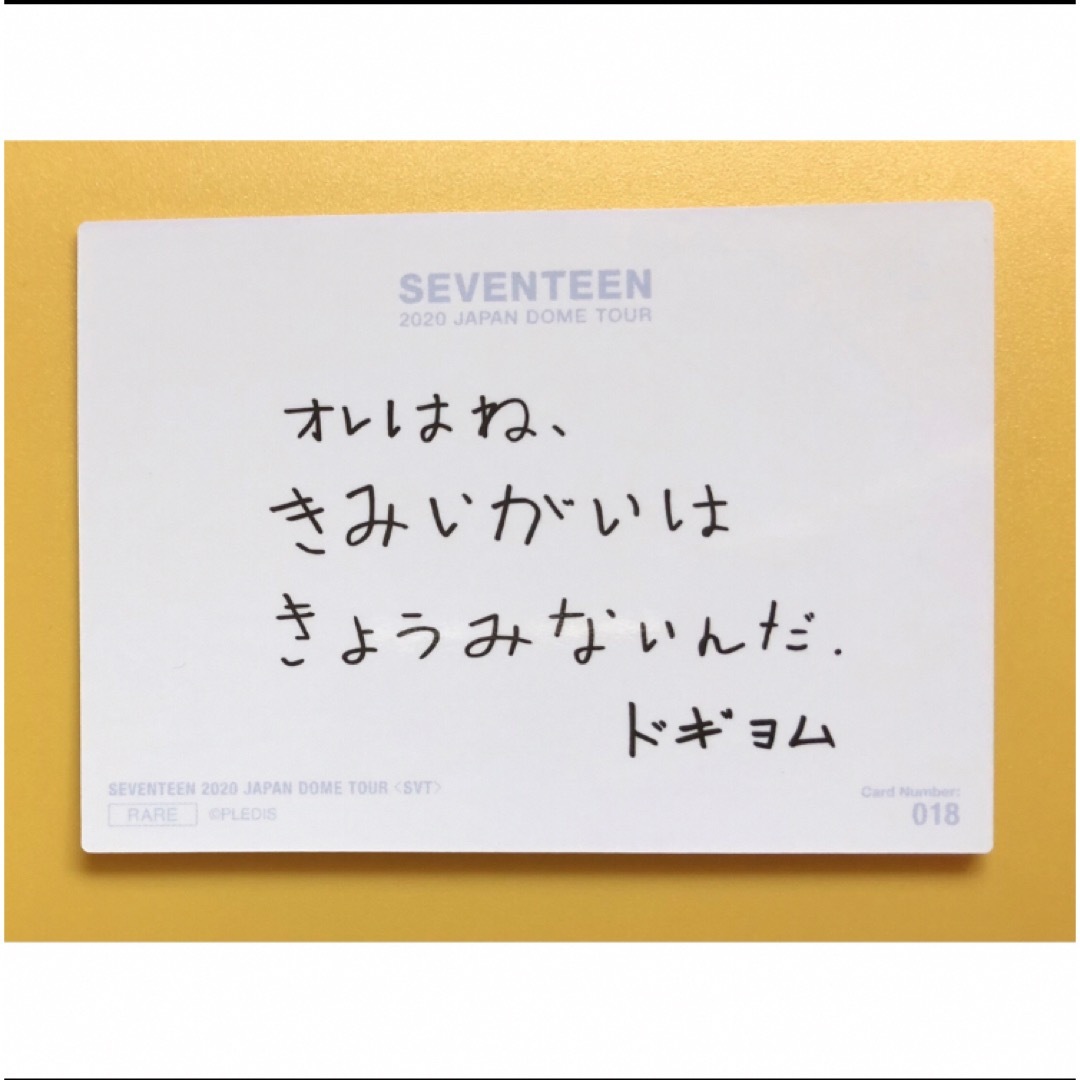 SEVENTEEN
2020 JAPAN DOME TOUR
オレはね、
きみいがいは
きょうみないんだ.
ドギョム
SEVENTEEN 2020 JAPAN DOME TOUR <SVT>
RARE ©PLEDIS
Card Number:
018